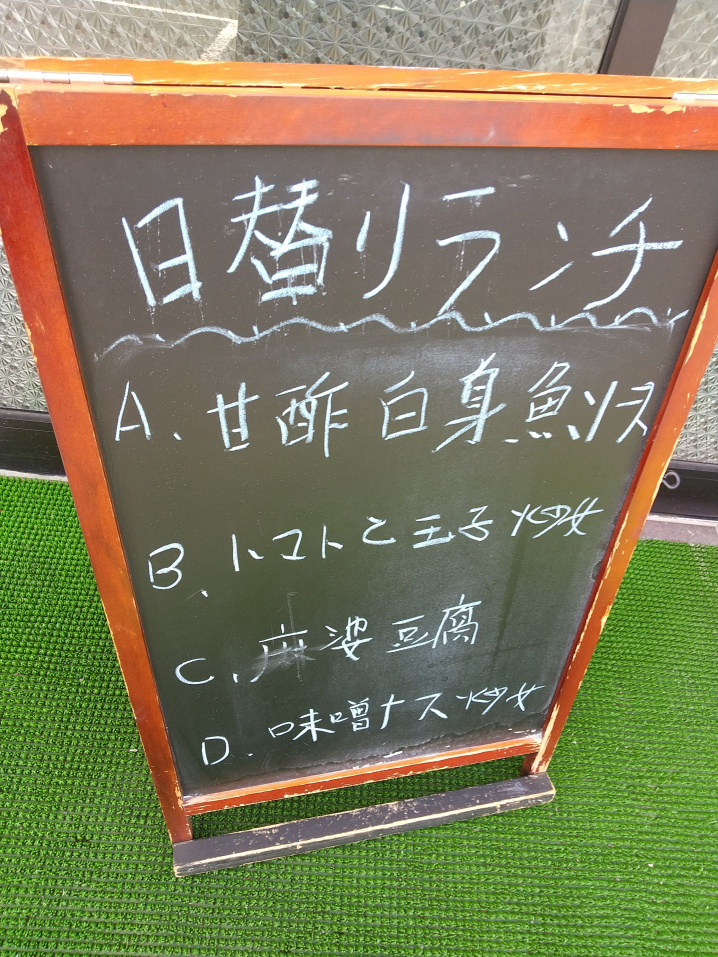 日替りランチ
A、甘酢白身魚ソス
B、トマトと玉子炒め
C、麻婆豆腐
D、味噌ナス炒め